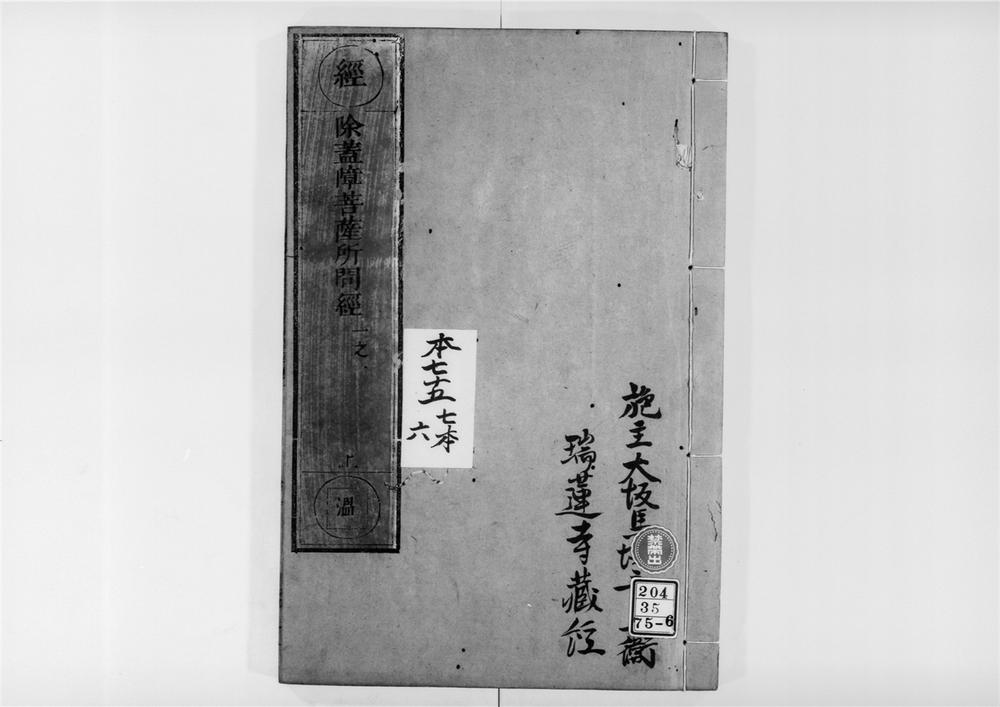 施主大坂馬
衛
瑞蓮寺藏经
禁帶出
204
35
75-6
本七五
七本
六
經
除蓋障菩薩所問經
一之
上
溫